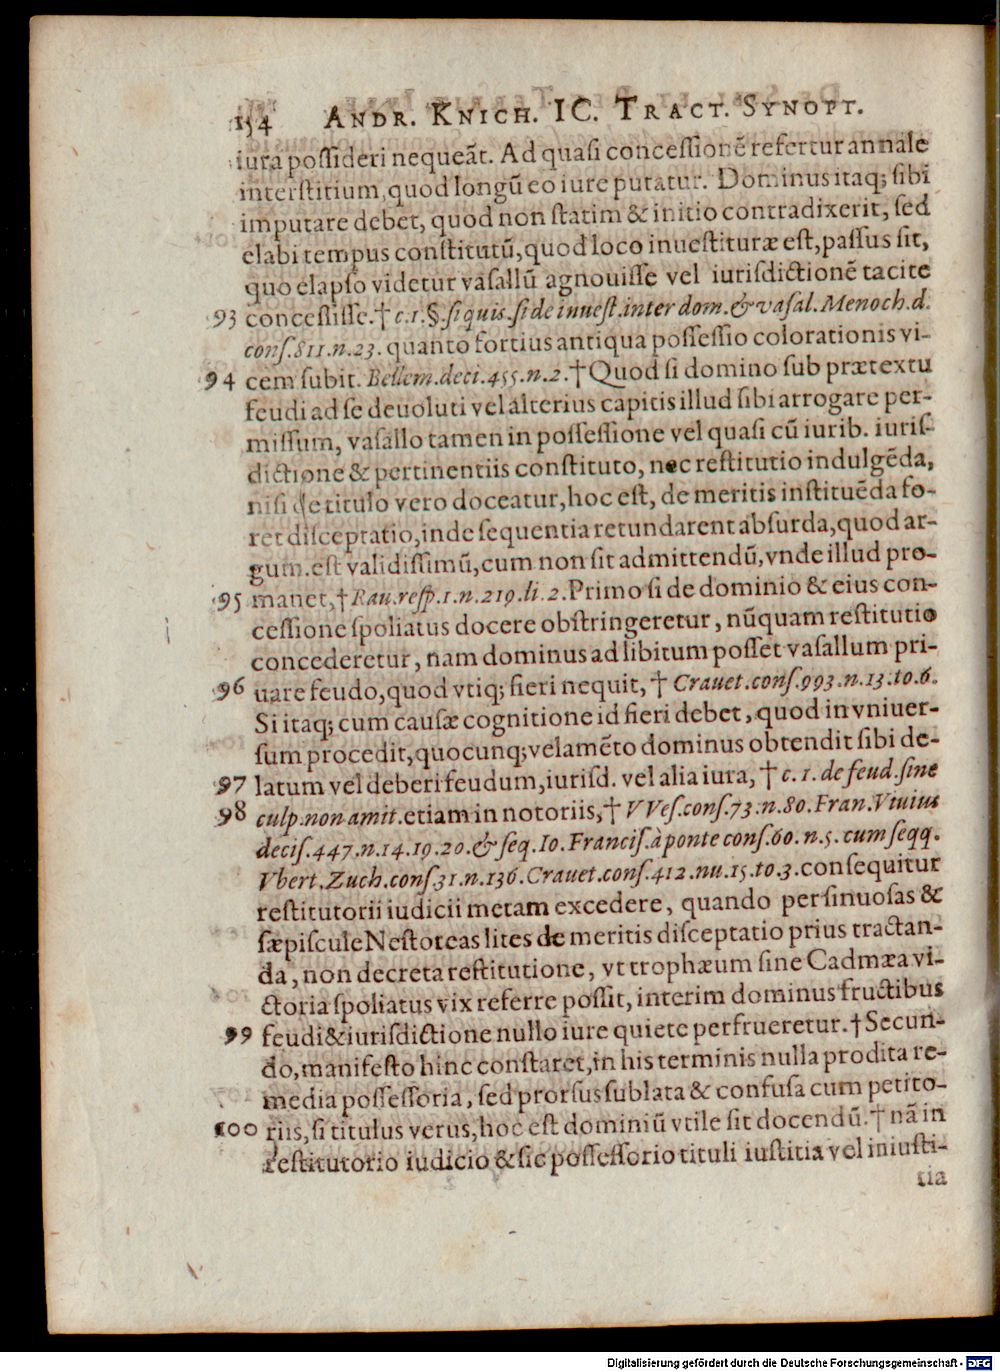 154 ANDR. KNICH. IC. TRACT. SYNOPT.
iura poſſideri nequeāt. Ad quaſi conceſſionē refertur annale
interſtitium, quod longū eo iure putatur. Dominus itaq; ſibi
imputare debet, quod non ſtatim & initio contradixerit, ſed
elabi tempus conſtitutū, quod loco inueſtituræ eſt, paſſus ſit,
quo elapſo videtur vaſallū agnouiſſe vel iurisdictionē tacite
93 conceſſiſſe. † c. 1. §. ſi quis. ſi de inueſt. inter dom. & vaſal. Menoch. d.
conſ. 811. n. 23. quanto fortius antiqua poſſeſſio colorationis vi-
94 cem ſubit. Bellem. deci. 455. n. 2. † Quod ſi domino ſub prætextu
feudi ad ſe deuoluti vel alterius capitis illud ſibi arrogare per-
miſſum, vaſallo tamen in poſſeſſione vel quaſi cū iurib. iuriſ-
dictione & pertinentiis conſtituto, nec reſtitutio indulgēda,
niſi de titulo vero doceatur, hoc eſt, de meritis inſtituēda fo-
ret diſceptatio, inde ſequentia retundarent abſurda, quod ar-
gum. eſt validiſſimū, cum non ſit admittendū, vnde illud pro-
95 manet, † Rau. reſp. 1. n. 219. li. 2. Primo ſi de dominio & eius con-
ceſſione ſpoliatus docere obſtringeretur, nūquam reſtitutio
concederetur, nam dominus ad libitum poſſet vaſallum pri-
96 uare feudo, quod vtiq; fieri nequit, † Crauet. conſ. 993. n. 13. to. 6.
Si itaq; cum cauſæ cognitione id fieri debet, quod in vniuer-
ſum procedit, quocunq; velamēto dominus obtendit ſibi de-
97 latum vel deberi feudum, iuriſd. vel alia iura, † c. 1. de feud. ſine
98 culp. non amit. etiam in notoriis, † VVeſ. conſ. 73. n. 80. Fran. Viuius
deciſ. 447. n. 14. 19. 20. & ſeq. Io. Franciſ. à ponte conſ. 60. n. 5. cum ſeqq.
Vbert. Zuch. conſ. 31. n. 136. Crauet. conſ. 412. nu. 15. to. 3. conſequitur
reſtitutorii iudicii metam excedere, quando per ſinuoſas &
ſæpiſcule Neſtoreas lites de meritis diſceptatio prius tractan-
da, non decreta reſtitutione, vt trophæum ſine Cadmæa vi-
ctoria ſpoliatus vix referre poſſit, interim dominus fructibus
99 feudi & iuriſdictione nullo iure quiete perfrueretur. † Secun-
do, manifeſto hinc conſtaret, in his terminis nulla prodita re-
media poſſeſſoria, ſed prorſus ſublata & confuſa cum petito-
100 riis, ſi titulus verus, hoc eſt dominiū vtile ſit docendū. † nā in
reſtitutorio iudicio & ſic poſſeſſorio tituli iuſtitia vel iniuſti-
tia
Digitalisierung gefördert durch die Deutsche Forschungsgemeinschaft - DFG